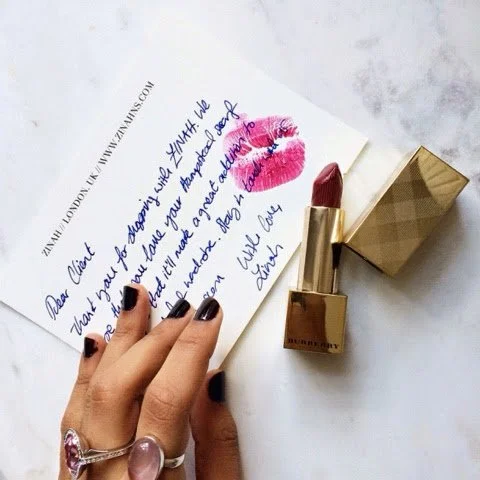 ZINAH // LONDON, UK // WWW.ZINAHNS.COM
Dear Client
Thank you for shopping with ZINAH. We
you love your Hampstead scarf
that it'll make a great addition to
wardrobe. Stay in touch
With love,
Zinah
BURBERRY